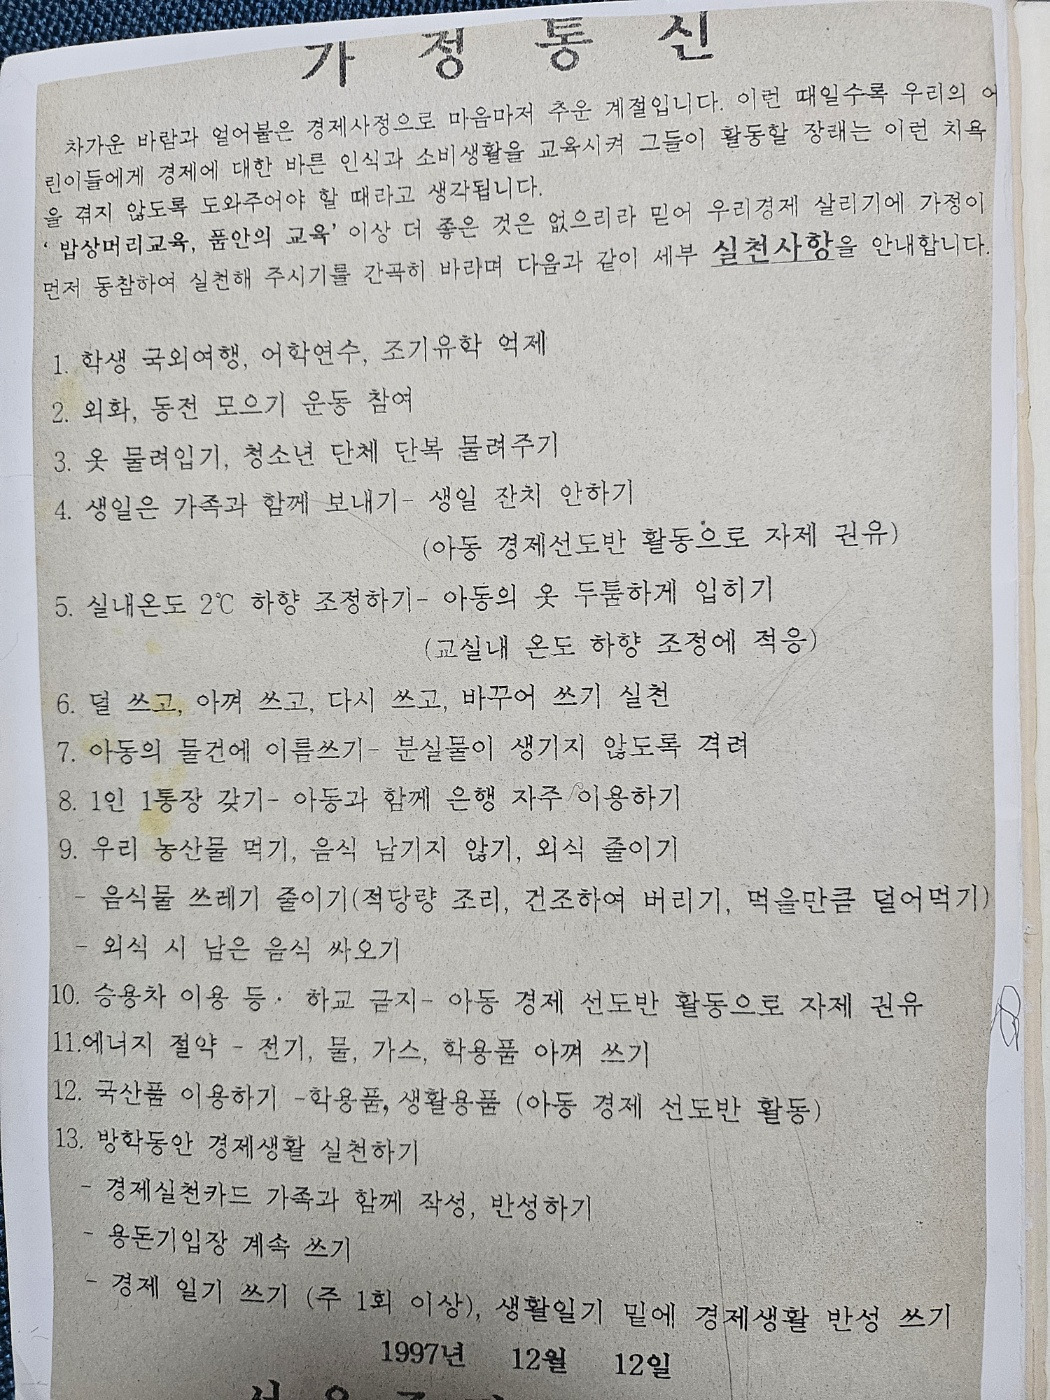 가 정 통 신
차가운 바람과 얼어붙은 경제사정으로 마음마저 추운 계절입니다. 이런 때일수록 우리의 어
린이들에게 경제에 대한 바른 인식과 소비생활을 교육시켜 그들이 활동할 장래는 이런 치욕
을 겪지 않도록 도와주어야 할 때라고 생각됩니다.
' 밥상머리교육, 품안의 교육' 이상 더 좋은 것은 없으리라 믿어 우리경제 살리기에 가정이
먼저 동참하여 실천해 주시기를 간곡히 바라며 다음과 같이 세부 실천사항을 안내합니다.
1. 학생 국외여행, 어학연수, 조기유학 억제
2. 외화, 동전 모으기 운동 참여
3. 옷 물려입기, 청소년 단체 단복 물려주기
4. 생일은 가족과 함께 보내기- 생일 잔치 안하기
(아동 경제선도반 활동으로 자제 권유)
5. 실내온도 2℃ 하향 조정하기- 아동의 옷 두툼하게 입히기
(교실내 온도 하향 조정에 적응)
6. 덜 쓰고, 아껴 쓰고, 다시 쓰고, 바꾸어 쓰기 실천
7. 아동의 물건에 이름쓰기- 분실물이 생기지 않도록 격려
8. 1인 1통장 갖기- 아동과 함께 은행 자주 이용하기
9. 우리 농산물 먹기, 음식 남기지 않기, 외식 줄이기
- 음식물 쓰레기 줄이기(적당량 조리, 건조하여 버리기, 먹을만큼 덜어먹기)
- 외식 시 남은 음식 싸오기
10. 승용차 이용 등· 하교 금지- 아동 경제 선도반 활동으로 자제 권유
11.에너지 절약 - 전기, 물, 가스, 학용품 아껴 쓰기
12. 국산품 이용하기 -학용품, 생활용품 (아동 경제 선도반 활동)
13. 방학동안 경제생활 실천하기
- 경제실천카드 가족과 함께 작성, 반성하기
- 용돈기입장 계속 쓰기
- 경제 일기 쓰기 (주 1회 이상), 생활일기 밑에 경제생활 반성 쓰기
1997년 12월 12일